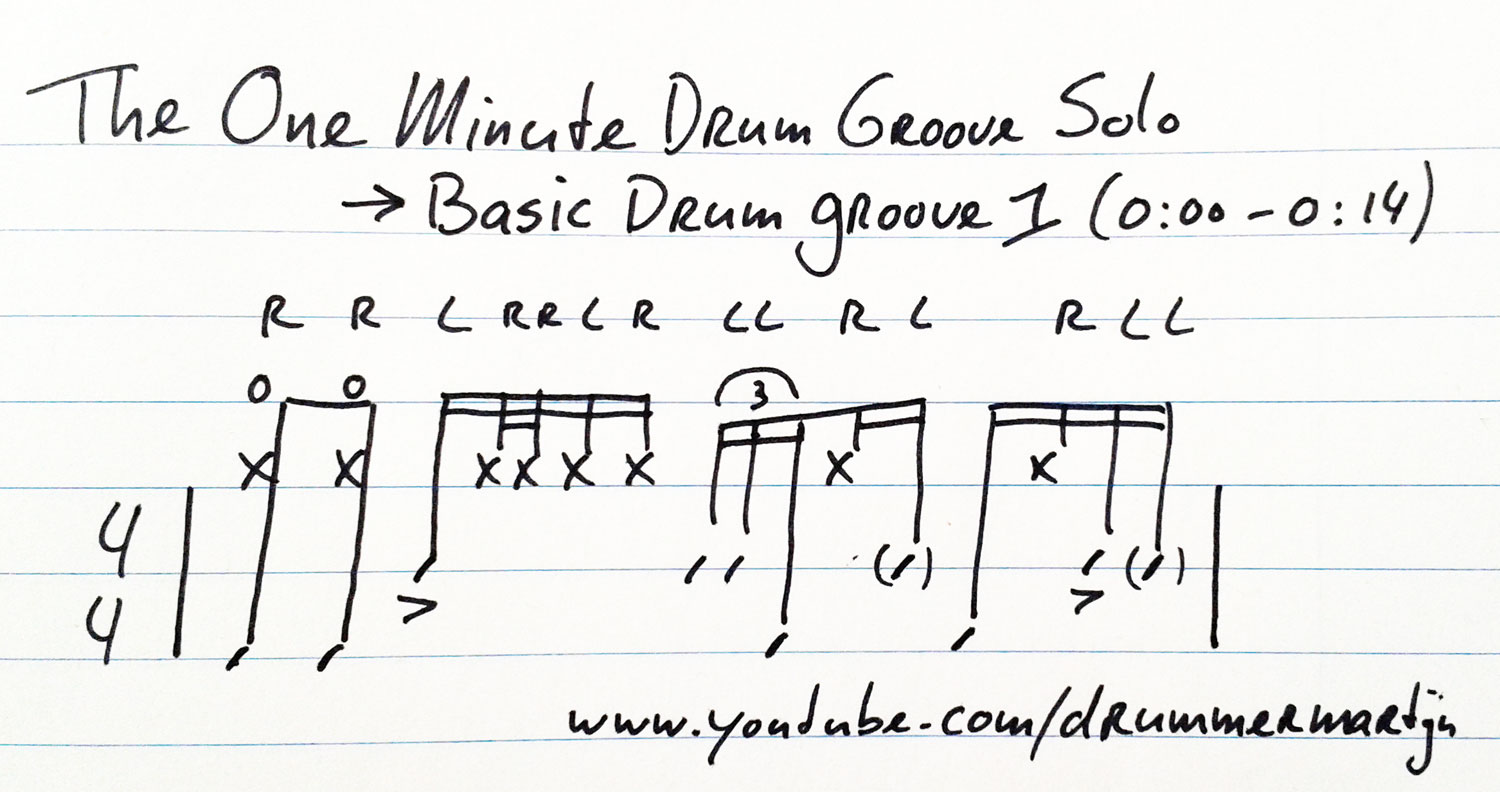 The One Minute Drum Groove Solo
→ Basic Drum groove 1 (0:00 - 0:14)
R R L R R L R L L R L R L L
O O 3
X X X X X X X X
4
4
> ( ) > ( )
www.youtube.com/drummermartijn